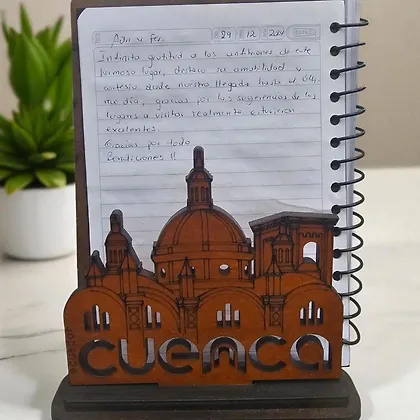 Adri y fer. 29 12 2024
Infinita gratitud a los anfitriones de este
hermoso lugar, destaco su amabilidad y
cortesia desde nuestra llegada hasta el
dia, gracias por las sugerencias de los
lugares a visitar realmente estuvieron
excelentes.
Gracias por todo
Bendiciones !!
cuenca